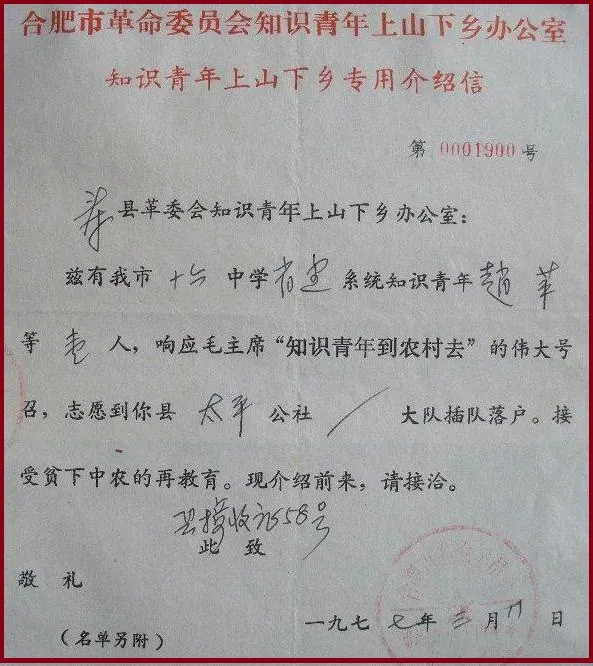 合肥市革命委员会知识青年上山下乡办公室
知识青年上山下乡专用介绍信
第 0001900 号
寿县革委会知识青年上山下乡办公室：
兹有我市 十六 中学 省建 系统知识青年 赵苹
等 壱 人，响应毛主席“知识青年到农村去”的伟大号
召，志愿到你县 太平 公社 / 大队插队落户。接
受贫下中农的再教育。现介绍前来，请接洽。
县接收证58号
此 致
敬 礼
一九七 七 年 三 月 日
（名单另附）